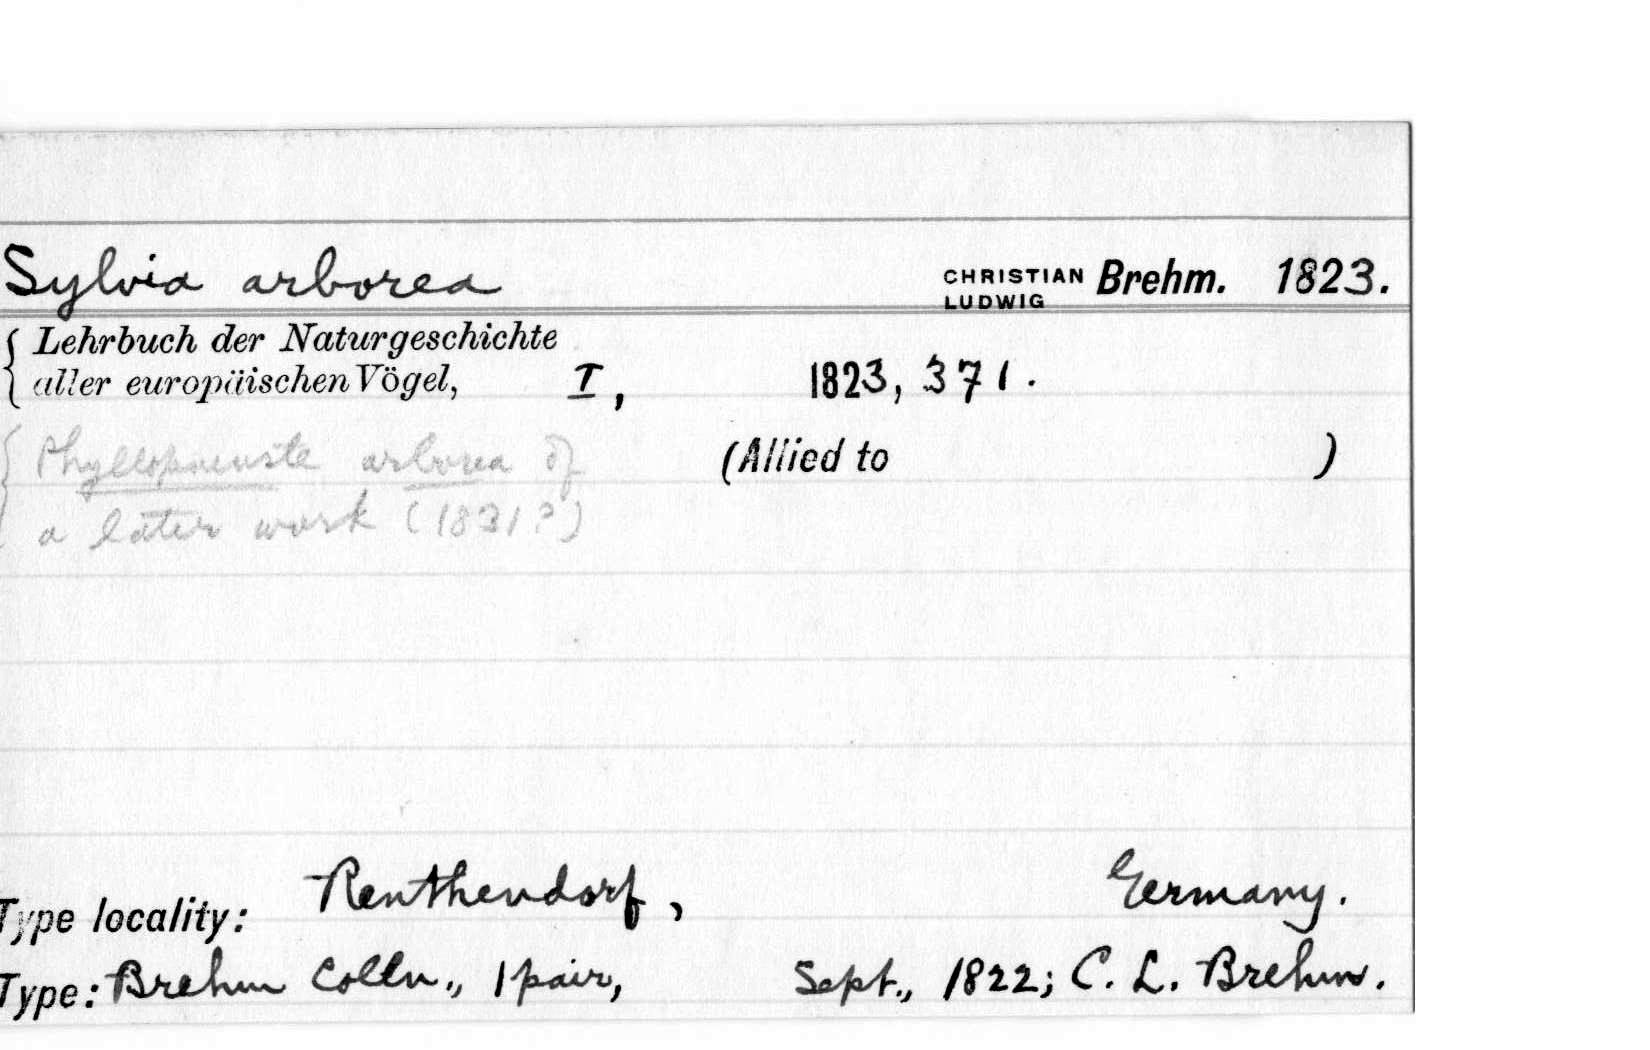 Sylvia arborea CHRISTIAN LUDWIG Brehm. 1823.
{ Lehrbuch der Naturgeschichte
aller europäischen Vögel, I, 1823, 371.
{ Phyllopneuste arborea of (Allied to )
a later work (1831?)
Type locality: Renthendorf, Germany.
Type: Brehm Colln., 1 pair, Sept., 1822; C. L. Brehm.